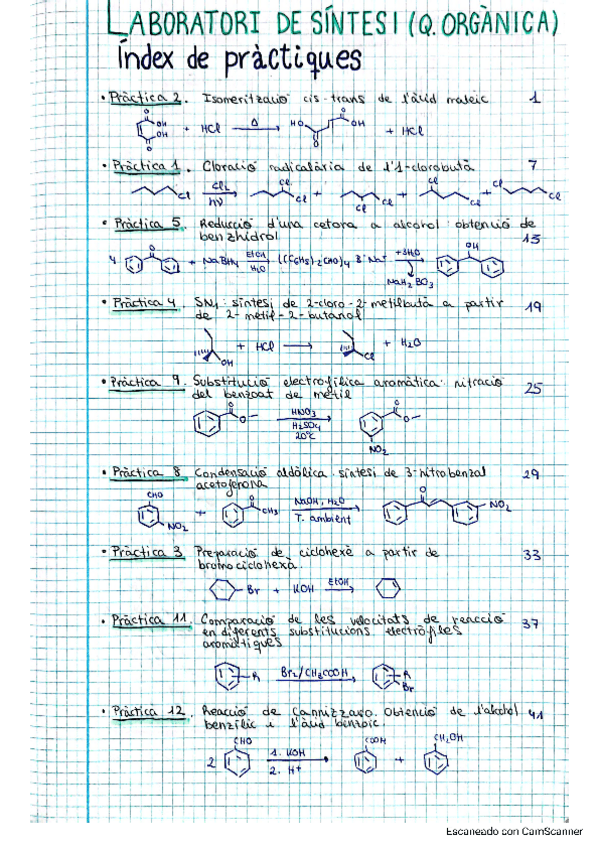 LABORATORI DE SÍNTESI (Q. ORGÀNICA)
Índex de pràctiques
• Pràctica 2. Isomerització cis-trans de l'àcid maleic 1
OH OH + HCl Δ HO O O OH + HCl
• Pràctica 1. Cloració radicalària de l'1-clorobutà 7
Cl Cl2 hν Cl Cl + Cl Cl + Cl Cl + Cl Cl
• Pràctica 5. Reducció d'una cetona a alcohol: obtenció de
benzhidrol 13
4 O + NaBH4 EtOH H2O ((C6H5)2CHO)4 B⁻Na⁺ +3H2O NaH2BO3 OH
• Pràctica 4. SN1: síntesi de 2-cloro-2-metilbutà a partir 19
de 2-metil-2-butanol
OH + HCl Cl + H2O
• Pràctica 9. Substitució electrofílica aromàtica: nitració 25
del benzoat de metil
O O HNO3 H2SO4 20°C O O NO2
• Pràctica 8. Condensació aldòlica: síntesi de 3-nitrobenzal 29
acetofenona
CHO NO2 + O CH3 NaOH, H2O T. ambient O NO2
• Pràctica 3. Preparació de ciclohexè a partir de 33
bromociclohexà.
Br + KOH EtOH
• Pràctica 11. Comparació de les velocitats de reacció 37
en diferents substitucions electròfiles
aromàtiques
R Br2/CH3COOH R Br
• Pràctica 12. Reacció de Cannizzaro. Obtenció de l'alcohol 41
benzílic i l'àcid benzoic.
2 CHO 1. KOH 2. H⁺ COOH + CH2OH
Escaneado con CamScanner